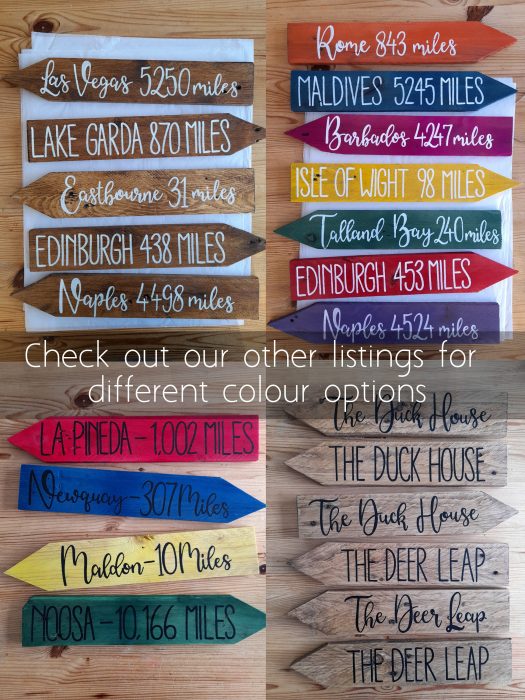 Las Vegas 5250 miles
LAKE GARDA 870 MILES
Eastbourne 31 miles
EDINBURGH 438 MILES
Naples 4498 miles
Rome 843 miles
MALDIVES 5245 MILES
Barbados 4247 miles
ISLE OF WIGHT 98 MILES
Talland Bay 240 miles
EDINBURGH 453 MILES
Naples 4524 miles
Check out our other listings for
different colour options
LA-PINEDA-1,002 MILES
Newquay-307Miles
Maldon-10Miles
NOOSA-10,166 MILES
The Duck House
THE DUCK HOUSE
The Duck House
THE DEER LEAP
The Deer Leap
THE DEER LEAP